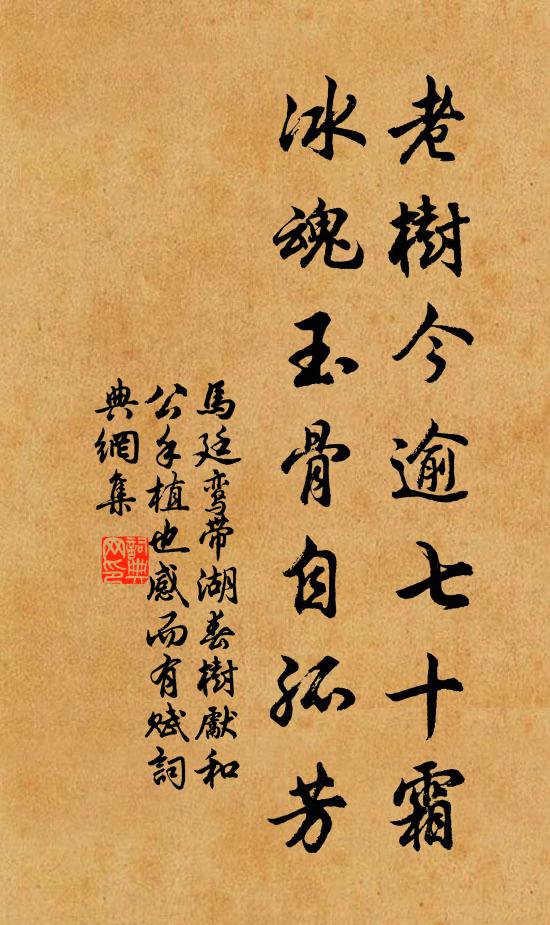 老樹今逾七十霜
冰魂玉骨自孤芳
馬廷鸾帶湖春樹獻和
公手植也感而有赋詞
典網集
詞典
网印